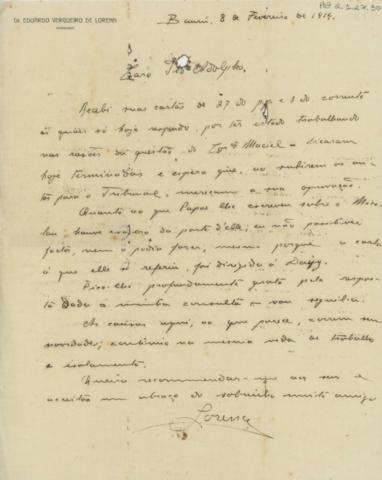 Dr. EDUARDO VERGUEIRO DE LORENA
ADVOGADO
Baurú, 8 de Fevereiro de 1919.
Caro Adolpho,
Recebi suas cartas de 27 do p.p. e 3 do corrente
ás quaes só hoje respondo, por ter estado trabalhando
nas razões da questão do Maciel – ficaram
hoje terminadas e espero que, ao subirem os au-
tos para o Tribunal, mereçam a sua approvação.
Quanto ao que Papae lhe escreveu sobre o
houve da parte d'elle; eu não
factos, nem o podia fazer, mesmo porque a carta
á que elle se referiu, foi dirigida á
Fico-lhe profundamente grato pela respos-
ta dada á minha consulta
As cousas aqui, ao que parece, correm sem
novidades; continúo na mesma vida de trabalho
e isolamento.
Queira recommendar-me aos seus e
acceitar um abraço do sobrinho muito amigo
Lorena